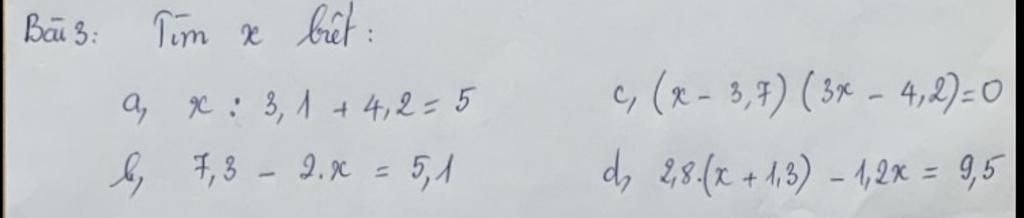 Bài 3: Tìm x biết:
a, x : 3,1 + 4,2 = 5
c, (x - 3,7) (3x - 4,2) = 0
b, 7,3 - 2.x = 5,1
d, 2,8.(x + 1,3) - 1,2x = 9,5